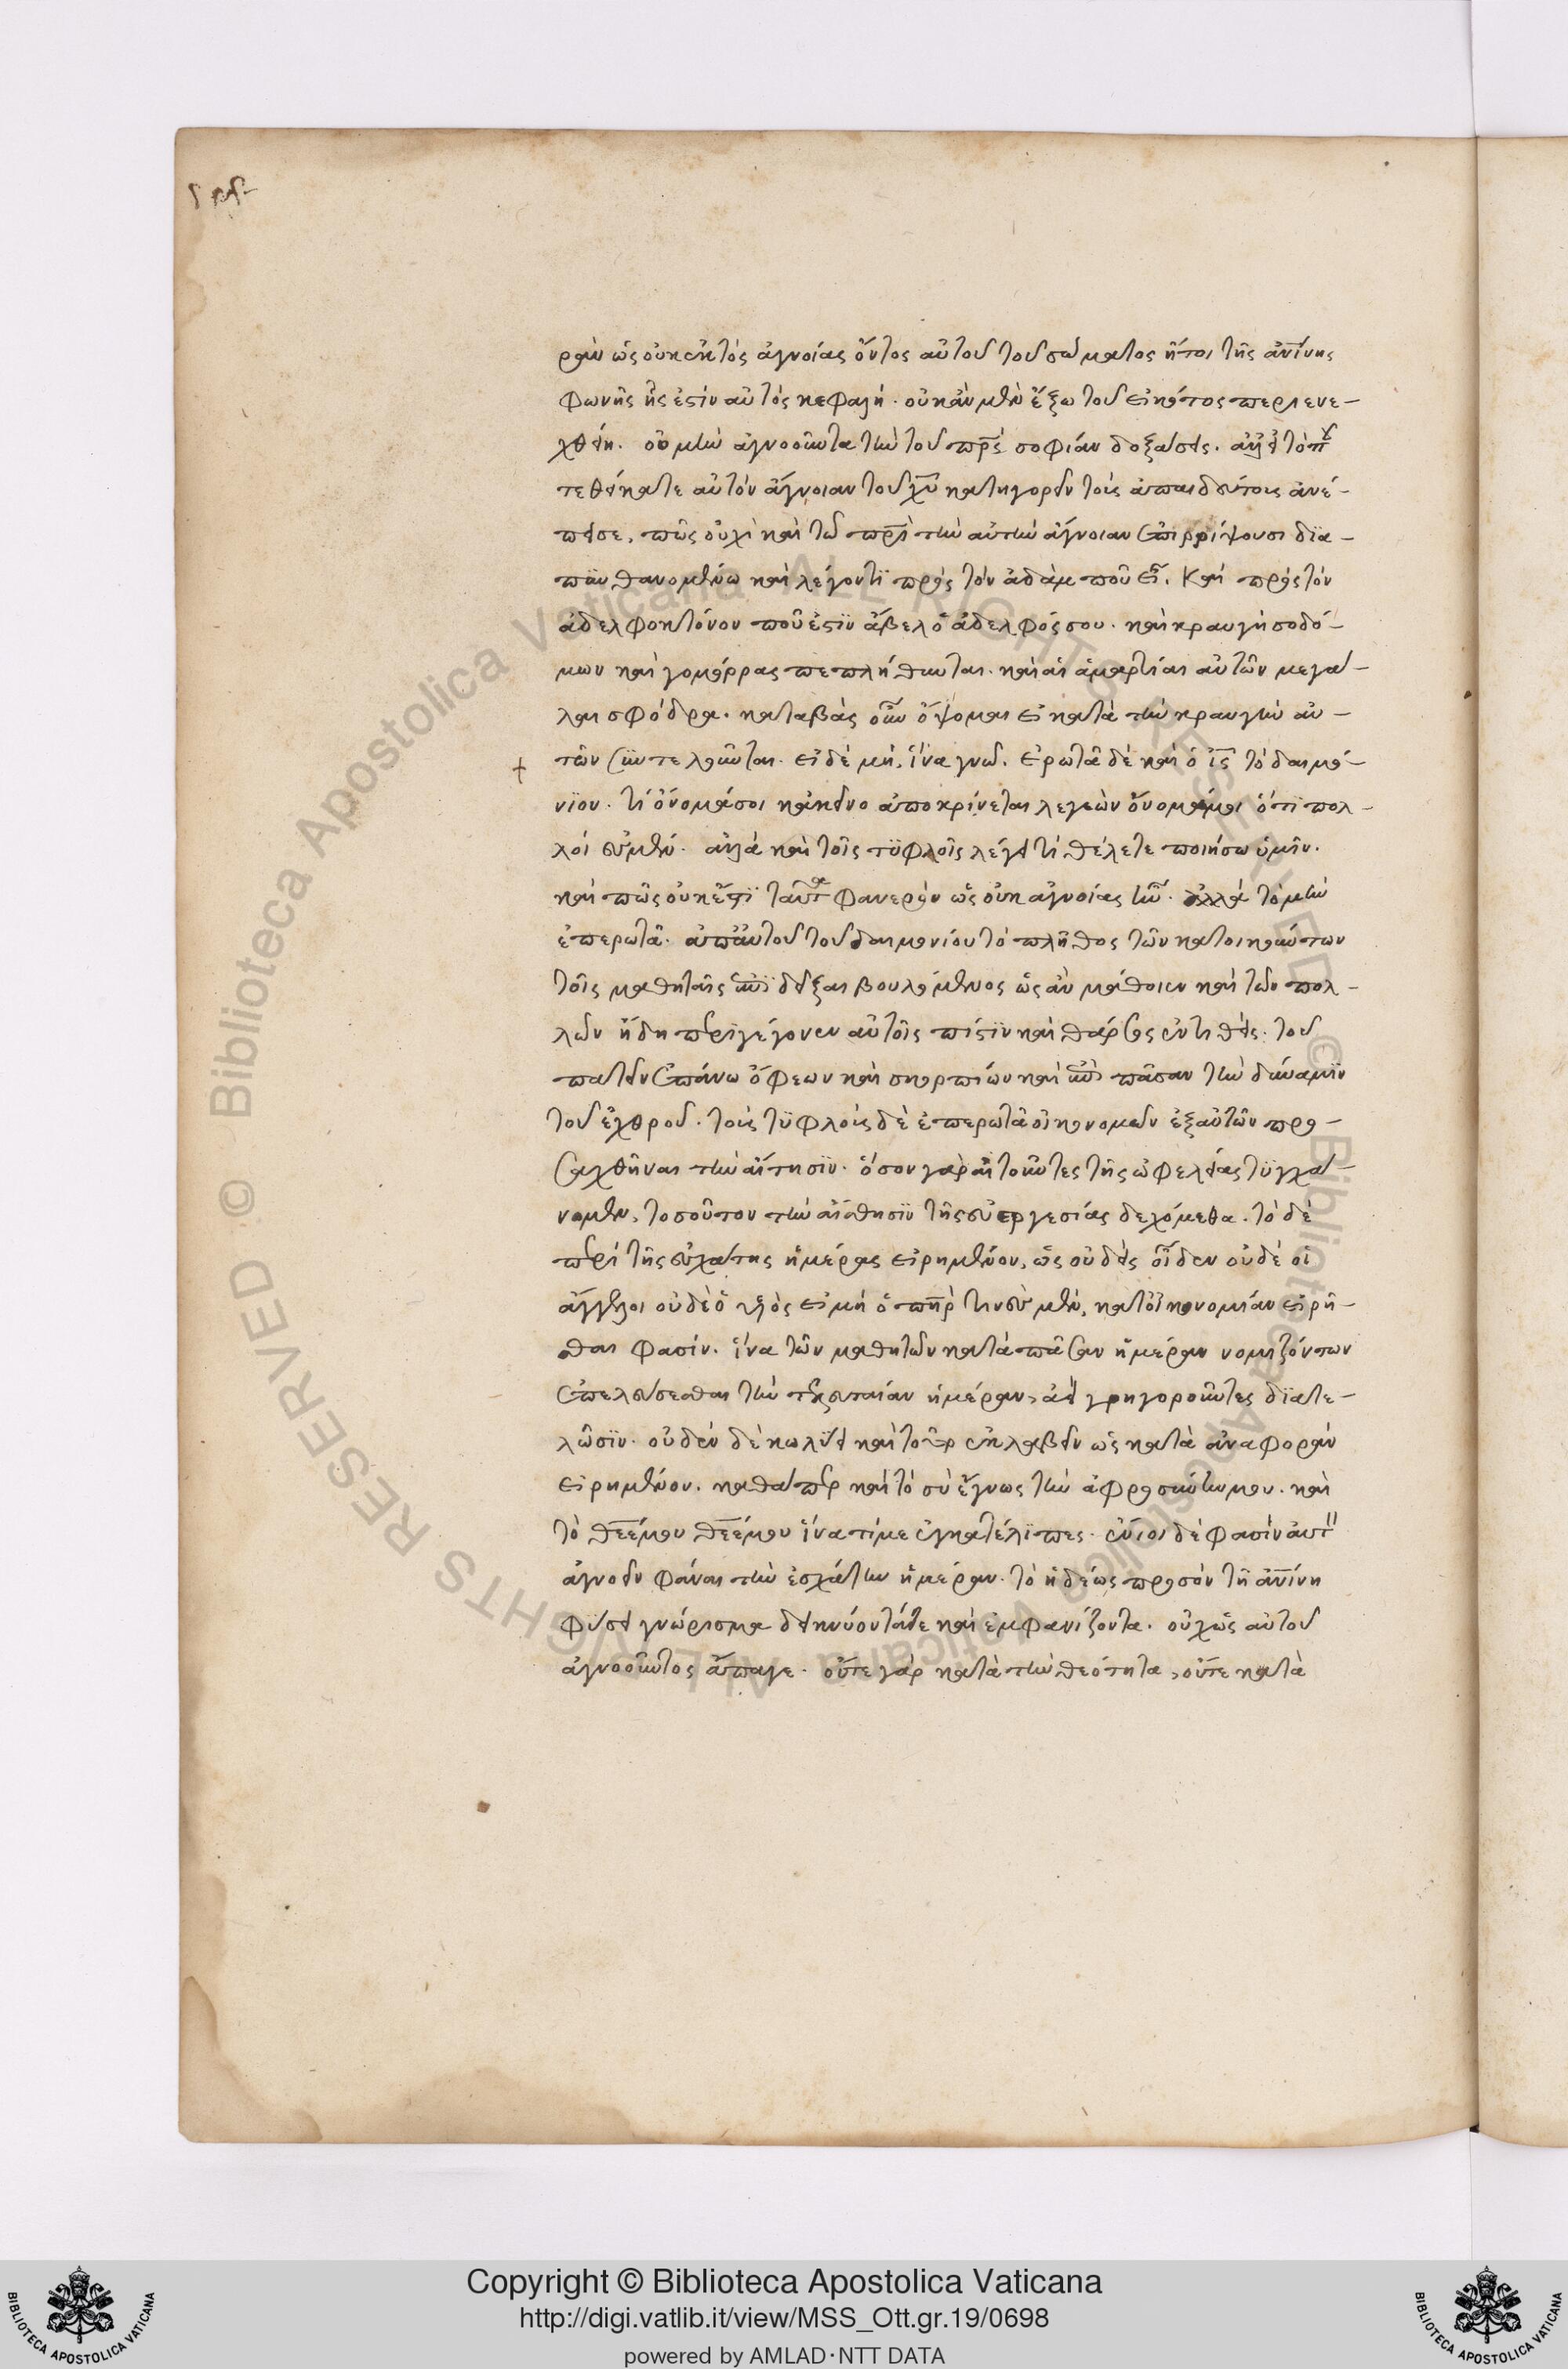 ραν ὡς οὐκ ἐκτὸς ἀγνοίας ὄντος αὐτοῦ τοῦ σώματος ἤτοι τῆς ἀνίνης
φωνῆς ἧς ἐστὶν αὐτὸς κεφαλή. οὐκ ἂν μὲν ἔξω τοῦ εἰκότος περιενε-
χθείη. οὐ μὴν ἀγνοοῦντα τὴν τοῦ πρς σοφίαν δοξάσεις. ἀλλ' εἰ τὸ
τεθήκατε αὐτὸν ἄγνοιαν τοῦ χυ κατηγορεῖν τοῖς ἀπαιδεύτοις ἀνέ-
πεισε, πῶς οὐχὶ καὶ τῶ πρὶ τὴν αὐτὴν ἄγνοιαν ἐπιρρίψουσι δϊα-
πϋνθανομένω καὶ λέγοντϊ πρὸς τὸν ἀδὰμ ποῦ εἶ. Καὶ πρὸς τὸν
ἀδελφοκτόνον ποῦ ἐστϊν ἄβελ ὁ ἀδελφός σου. καὶ κραυγὴ σοδό-
μων καὶ γομόρρας πεπλήθυνται. καὶ αἱ ἁμαρτίαι αὐτῶν μεγά-
λαι σφόδρα. καταβὰς οὖν ὄψομαι εἰ κατὰ τὴν κραυγὴν αὐ-
τῶν συντελοῦνται. εἰ δὲ μή, ἵνα γνῶ. ἐρωτᾶ δὲ καὶ ὁ ις τὸ δαιμό-
νϊον. τί ὄνομά σοι κἀκεῖνο ἀποκρίνεται λεγεὼν ὄνομά μοι ὅτϊ πολ-
λοί ἐσμεν. ἀλλὰ καὶ τοῖς τϋφλοῖς λέγει τί θέλετε ποιήσω ὑμῖν.
καὶ πῶς οὐκ ἔστϊ ταῦτα φανερὸν ὡς οὐκ ἀγνοίας ἦν. ἀλλὰ τὸ μὲν
ἐπερωτᾶ. ἀπ' αὐτοῦ τοῦ δαιμονίου τὸ πλῆθος τῶν κατοικούντων
τοῖς μαθηταῖς ὑποδεῖξαι βουλόμενος ὡς ἂν μάθοιεν καὶ τῶν πολ-
λῶν ἤδη περϊγέγονεν αὐτοῖς πίστϊν καὶ θάρσος ἐντιθείς. τοῦ
πατεῖν ἐπάνω ὄφεων καὶ σκορπίων καὶ ἐπὶ πᾶσαν τὴν δύναμϊν
τοῦ ἐχθροῦ. τοῖς τϋφλοῖς δὲ ἐπερωτᾶ οἰκονομῶν ἐξ αὐτῶν προ-
σαχθῆναι τὴν αἴτησϊν. ὅσον γὰρ αἰτοῦντες τῆς ὠφελείας τϋγχά-
νομεν, τοσοῦτον τὴν αἴσθησϊν τῆς εὐεργεσίας δεχόμεθα. τὸ δὲ
περὶ τῆς ἐσχάτης ἡμέρας εἰρημένον, ὡς οὐδεὶς οἶδεν οὐδὲ οἱ
ἄγγελοι οὐδὲ ὁ υἱὸς εἰ μὴ ὁ πηρ κατ' οἰκονομίαν εἰρῆ-
σθαι φασίν. ἵνα τῶν μαθητῶν κατὰ πᾶσαν ἡμέραν νομιζόντων
ἐπελεύσεσθαι τὴν τελευταίαν ἡμέραν, ἀεὶ γρηγοροῦντες δϊατε-
λῶσϊν. οὐδὲν δὲ κωλύει καὶ τοῦτο ἐκλαβεῖν ὡς κατὰ ἀναφορὰν
εἰρημένον. καθάπερ καὶ τὸ σὺ ἔγνως τὴν ἀφροσύνην μου. καὶ
τὸ θεέμου θεέμου ἵνα τί με ἐγκατέλϊπες. ἔνιοι δὲ φασὶν
ἀγνοεῖν φάναι τὴν ἐσχάτην ἡμέραν. τὸ ἡδέως προσὸν τῆ ἀνίνη
φύσει γνώρισμα δεικνύοντά τε καὶ ἐμφανίζοντα. οὐχ ὡς αὐτοῦ
ἀγνοοῦντος ἄπαγε. οὔτε γὰρ κατὰ τὴν θεότητα, οὔτε κατὰ
Copyright © Biblioteca Apostolica Vaticana
http://digi.vatlib.it/view/MSS_Ott.gr.19/0698
powered by AMLAD·NTT DATA